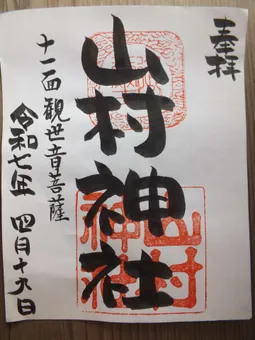 奉拝
山村神社
十一面観世音菩薩
令和七年 四月十九日
山村
神社